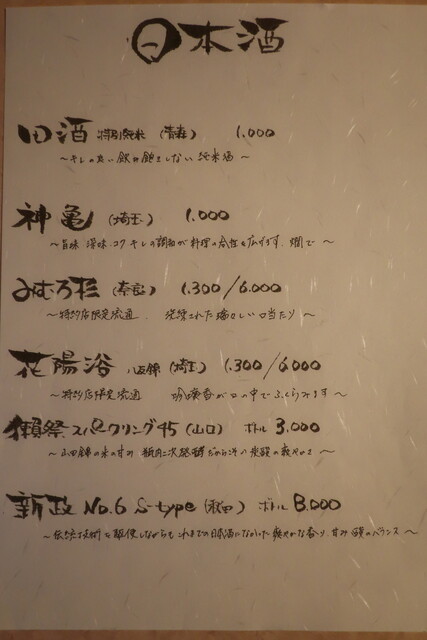 日本酒
田酒 特別純米 (青森) 1.000
〜キレの良い飲み飽きしない純米酒〜
神亀 (埼玉) 1.000
〜旨味 深味 コク キレの調和が料理の合性を広げます. 燗で〜
みむろ杉 (奈良) 1.300/6.000
〜特約店限定流通 洗練された瑞々しい口当たり〜
花陽浴 八反錦 (埼玉) 1.300/6.000
〜特約店限定流通 吟醸香が口の中でふくらみます〜
獺祭 スパークリング45 (山口) ボトル 3.000
〜山田錦の米の甘み 瓶内二次発酵だからこそい炭酸の爽やかさ〜
新政 No.6 S-type (秋田) ボトル 8.000
〜伝統技術を駆使しながらもこれまでの日本酒になかった爽やかな香り. 甘み 酸のバランス〜